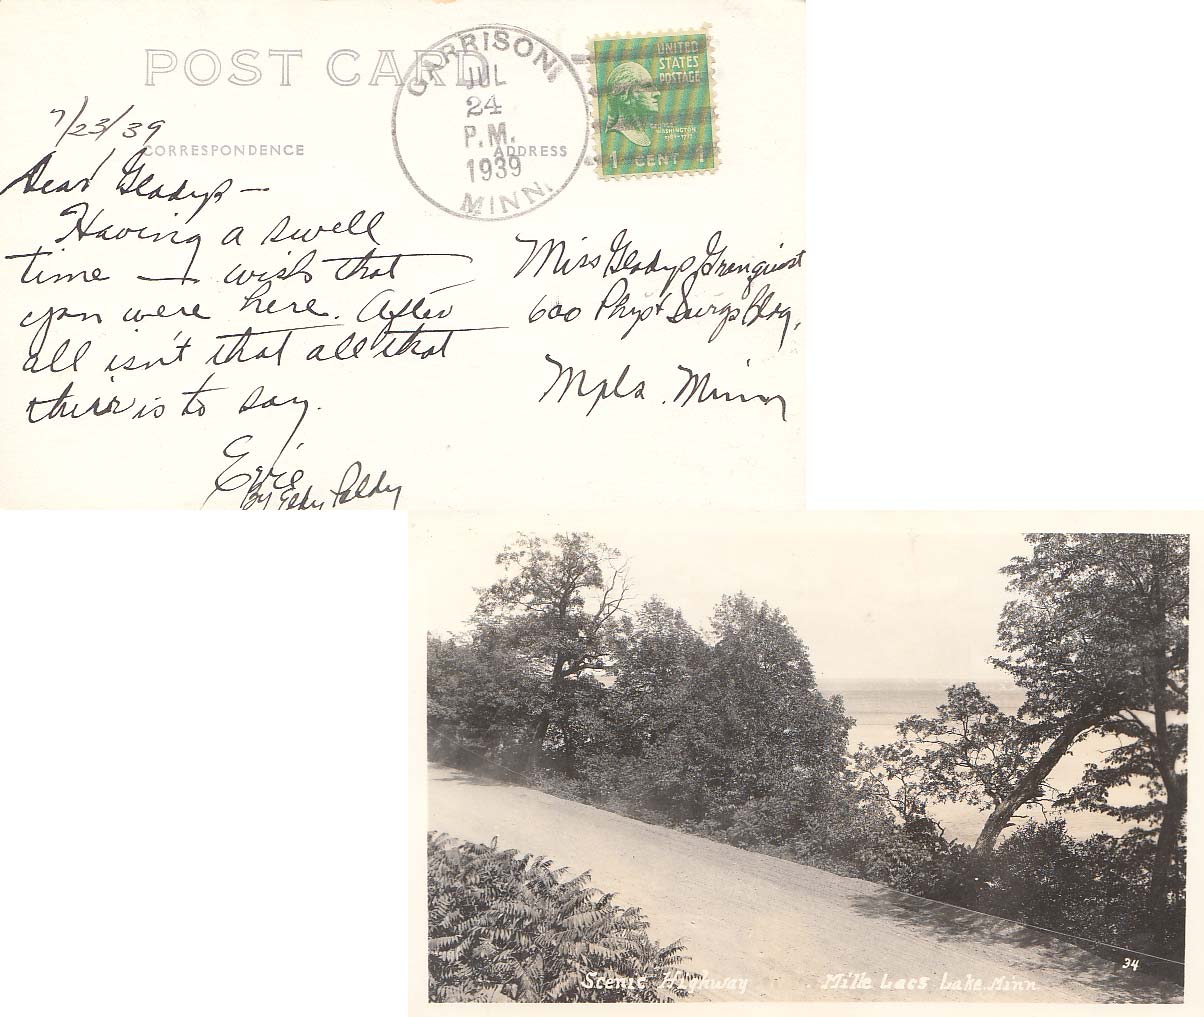 POST CARD
GARRISON
JUL
24
P.M.
1939
MINN.
UNITED
STATES
POSTAGE
GEORGE
WASHINGTON
1 CENT 1
7/23/39
CORRESPONDENCE
ADDRESS
Dear Gladys —
Having a swell
time — wish that
you were here. After
all isn't that all that
there is to say.
Evie
By
Miss Gladys Granquist
600 Phys & Surgs Bldg,
Mpls. Minn
Scenic Highway Mille Lacs Lake. Minn
34